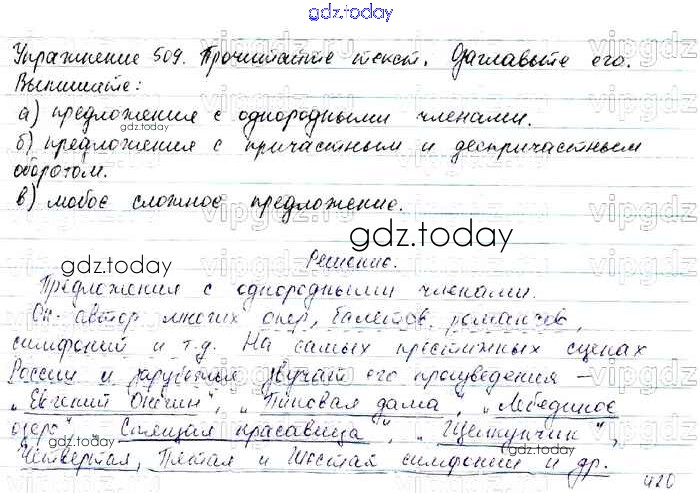 gdz.today
Упражнение 509. Прочитайте текст. Озаглавьте его.
Выпишите:
а) предложения с однородными членами.
gdz.today
б) предложения с причастным и деепричастным
оборотом.
в) любое сложное предложение.
gdz.today
Решение.
gdz.today
Предложения с однородными членами.
Он автор многих опер, балетов, романсов,
симфоний и т.д. На самых престижных сценах
России и зарубежья звучат его произведения –
„Евгений Онегин", „Пиковая дама", „Лебединое
озеро" „Спящая красавица", „Щелкунчик",
gdz.today
Четвертая, Пятая и Шестая симфонии и др.
420